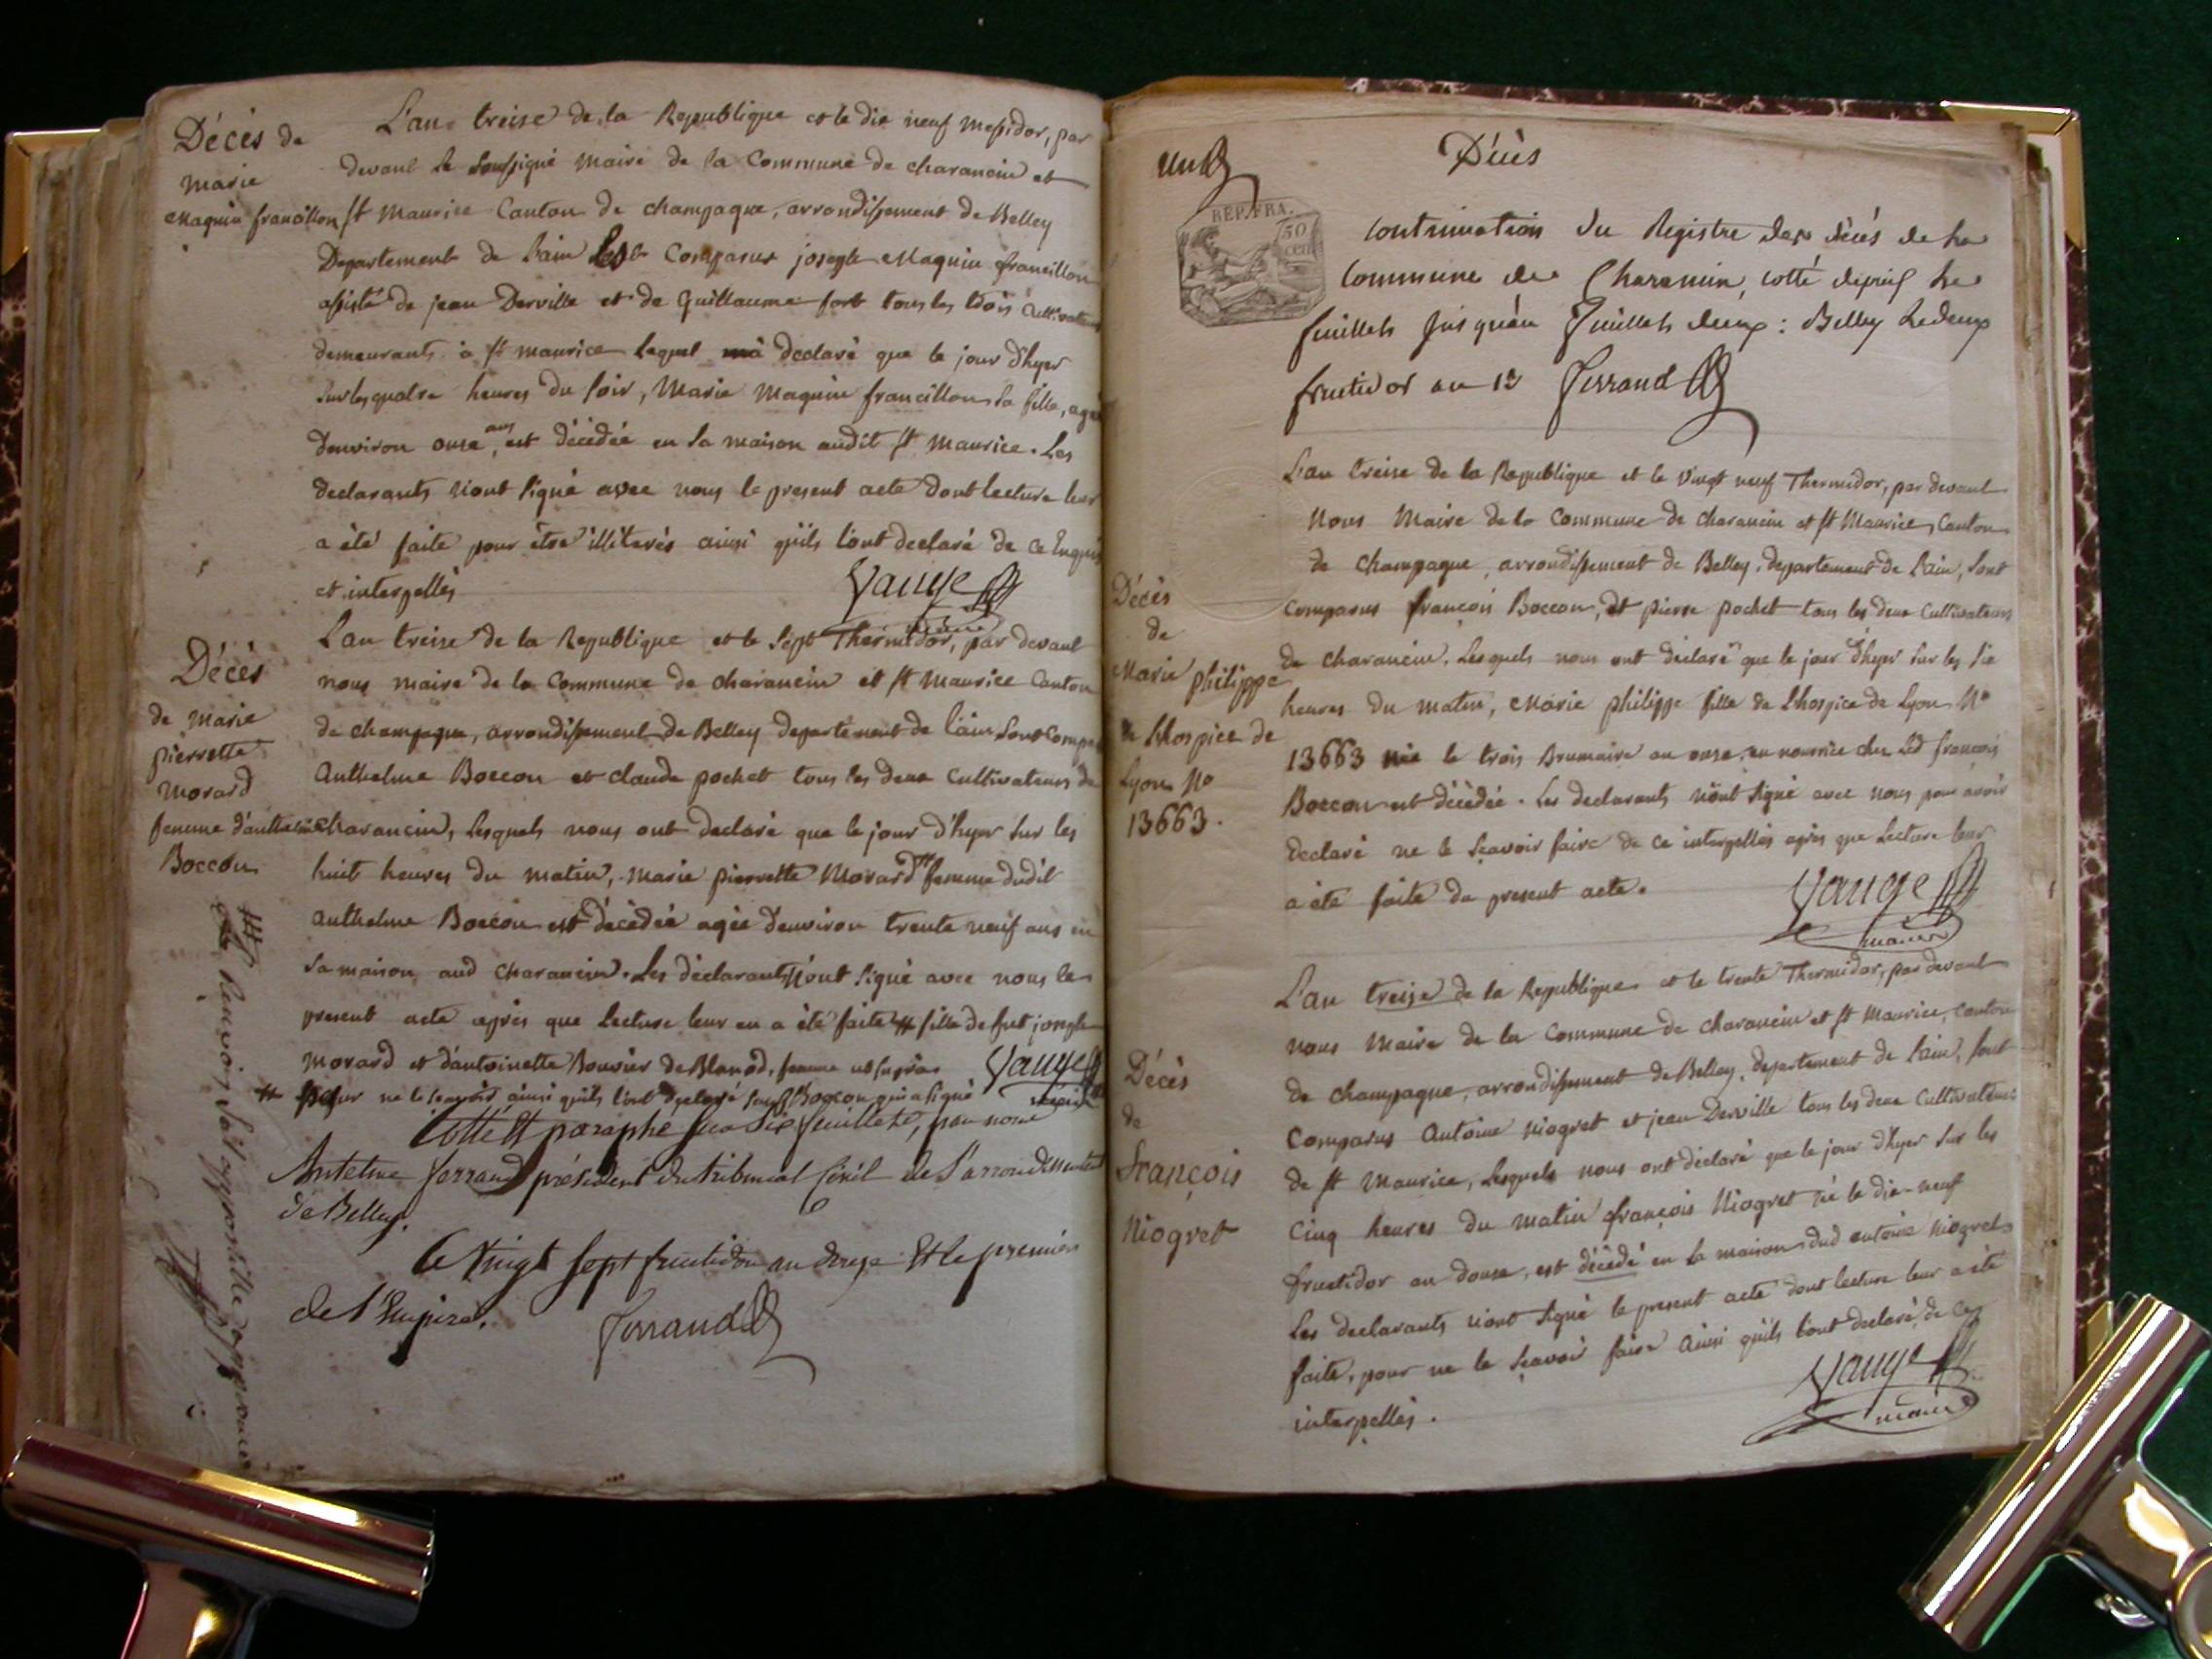 Décès de
marie
Maquin francillon
L'an treise de la Republique et le dix neuf messidor, par
devant le soussigné maire de la Commune de charancin et
st maurice Canton de champagne, arrondissement de Belley
Departement de l'ain Comparus joseph Maquin francillon
assisté de jean Derville et de Guillaume fort tous les trois Cultivateurs
demeurants à st maurice lequel m'a declaré que le jour d'hyer
sur les quatre heures du soir, Marie Maquin francillon sa fille, agée
d'environ onze ans, est décédée en sa maison audit st maurice. Les
declarants n'ont signé avec nous le present acte dont lecture leur
a été faite pour être illiterés ainsi qu'ils l'ont declaré de ce Enquis
et interpellés
Vauge
maire
Décès
de marie
pierrette
Morard
femme d'anthelme
Boccon
L'an treise de la Republique et le sept Thermidor, par devant
nous maire de la Commune de charancin et st Maurice Canton
de champagne, arrondissement de Belley departement de l'ain sont Comparus
Anthelme Boccon et claude pochet tous les deux Cultivateurs de
charancin, lesquels nous ont declaré que le jour d'hyer sur les
huit heures du matin, marie pierrette Morard # femme dudit
anthelme Boccon est décédée agée d'environ trente neuf ans en
sa maison aud charancin. Les déclarants # n'ont signé avec nous le
present acte après que lecture leur en a été faite # fille de fut joseph
morard et d'antoinette Bouvier de Blanod, femme ut supra
Vauge
maire
# pour ne le scavoir ainsi qu'ils l'ont declaré sauf Boccon qui a signé
Cotté et paraphé sur six feuillets, par nous
Antelme ferrand président du tribunal Civil de l'arrondissement
de Belley.
Ce Vingt sept fructidor an douze Et le premier
de l'Empire.
ferrand
# Renvoi soit apostille approuvé
un
Décès
REP. FRA.
50
cen
Continuation du Registre des décès de la
Commune de Charancin, cotté depuis le
feuillets jusqu'au feuillets deux : Belley le deux
fructidor an 13 ferrand
Décès
de
Marie philippe
de l'hospice de
Lyon N°
13663.
L'an treise de la Republique et le vingt neuf Thermidor, par devant
Nous Maire de la Commune de charancin et st Maurice, Canton
de champagne, arrondissement de Belley, departement de l'ain, sont
Comparus françois Boccon, et pierre pochet tous les deux Cultivateurs
de charancin, lesquels nous ont déclaré que le jour d'hyer sur les six
heures du matin, Marie philippe fille de l'hospice de Lyon N°
13663 née le trois Brumaire an onze, en nourrice chez led françois
Boccon est décédée. Les declarants n'ont signé avec nous pour avoir
declaré ne le sçavoir faire de ce interpellés après que lecture leur
a été faite du present acte.
Vauge
maire
Décès
de
françois
Niogret
L'an treize de la Republique et le trente Thermidor, par devant
nous Maire de la Commune de charancin et st Maurice, canton
de champagne, arrondissement de Belley, departement de l'ain, sont
Comparus Antoine niogret et jean Derville tous les deux Cultivateurs
de st Maurice, lesquels nous ont déclaré que le jour d'hyer sur les
cinq heures du matin françois Niogret né le dix-neuf
fructidor an douse, est décédé en la maison dud antoine Niogret.
Les declarants n'ont signé le present acte dont lecture leur a été
faite, pour ne le sçavoir faire ainsi qu'ils l'ont declaré, de ce
interpellés.
Vauge
maire